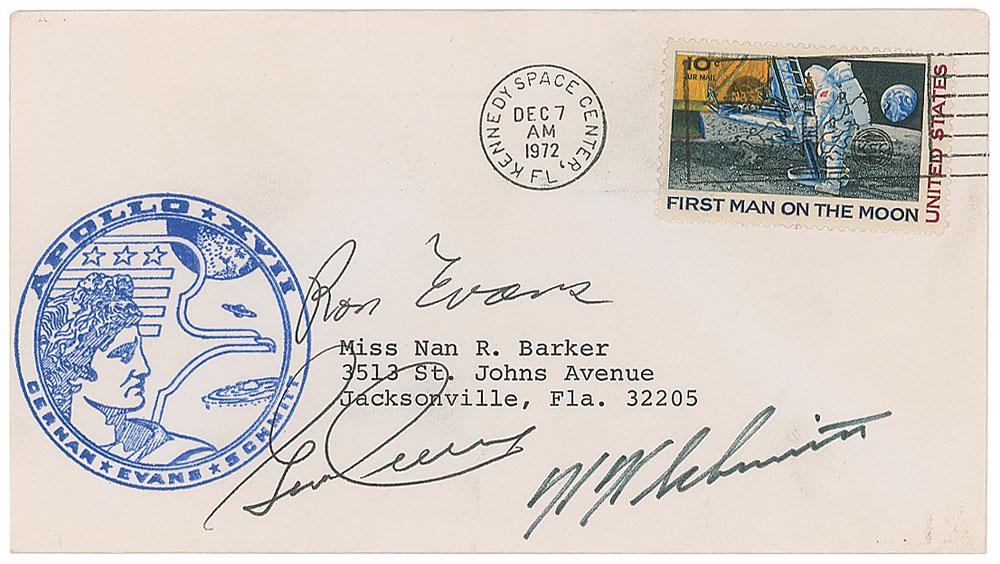 KENNEDY SPACE CENTER, FL,
DEC 7
AM
1972
10c
AIR MAIL
UNITED STATES
FIRST MAN ON THE MOON
APOLLO ★ XVII
CERNAN ★ EVANS ★ SCHMITT
Ron Evans
Miss Nan R. Barker
3513 St. Johns Avenue
Jacksonville, Fla. 32205
Gene Cernan
H H Schmitt